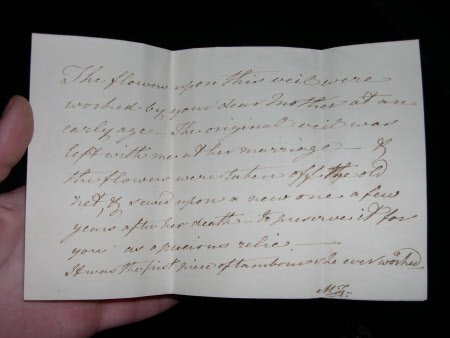 The flowers upon this veil were
worked by your dear Mother at an
early age – The original veil was
left with me at her marriage – &
the flowers were taken off the old
net, & sewed upon a new one a few
years after her death – to preserve it for
you as a precious relic. —
It was the first piece of tambour she ever worked